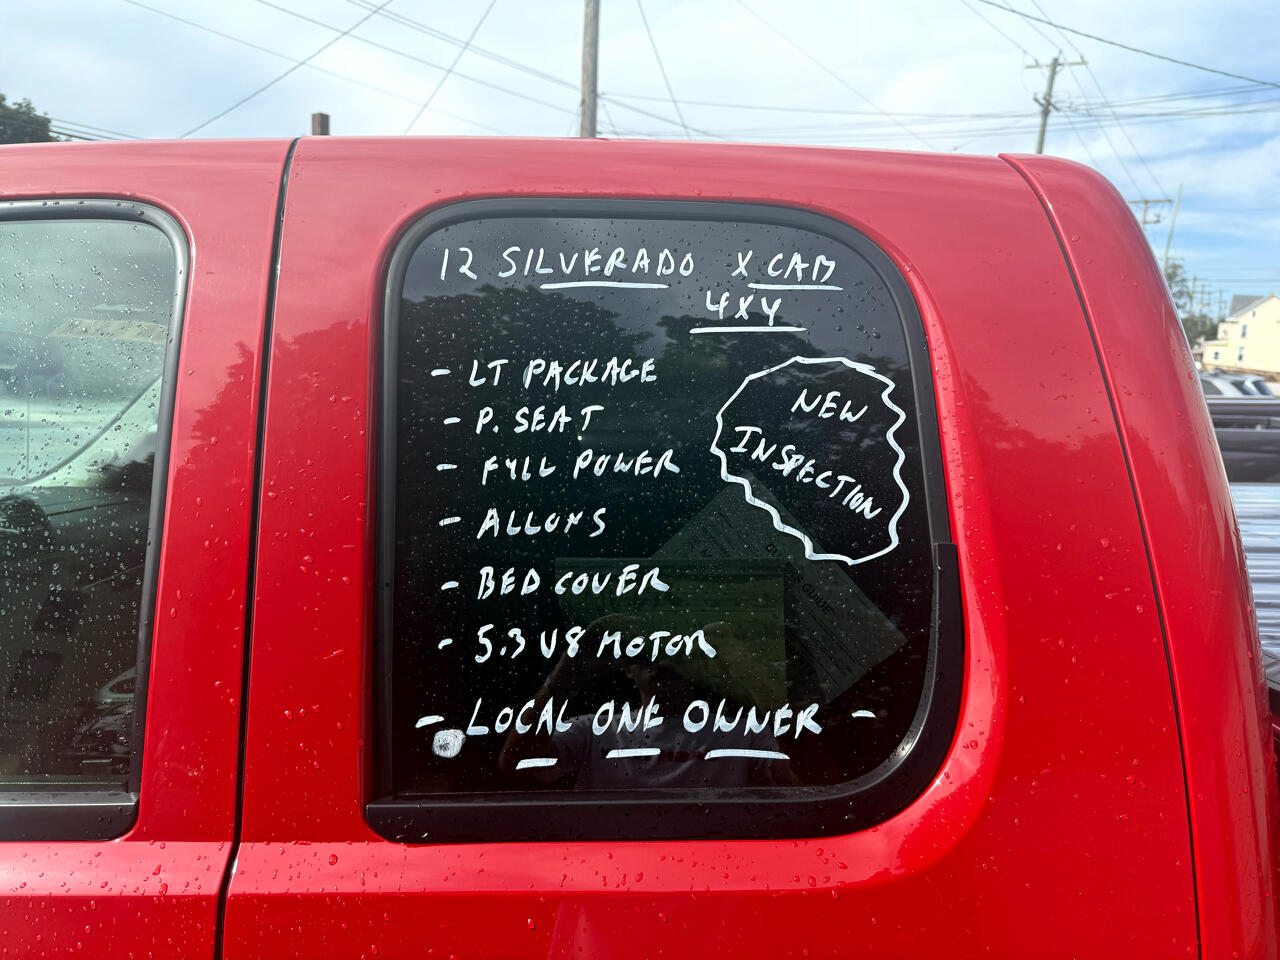 12 SILVERADO X CAB
4X4
- LT PACKAGE
- P. SEAT
- FULL POWER
- ALLOYS
- BED COVER
- 5.3 V8 MOTOR
- LOCAL ONE OWNER -
NEW
INSPECTION
BUYERS GUIDE